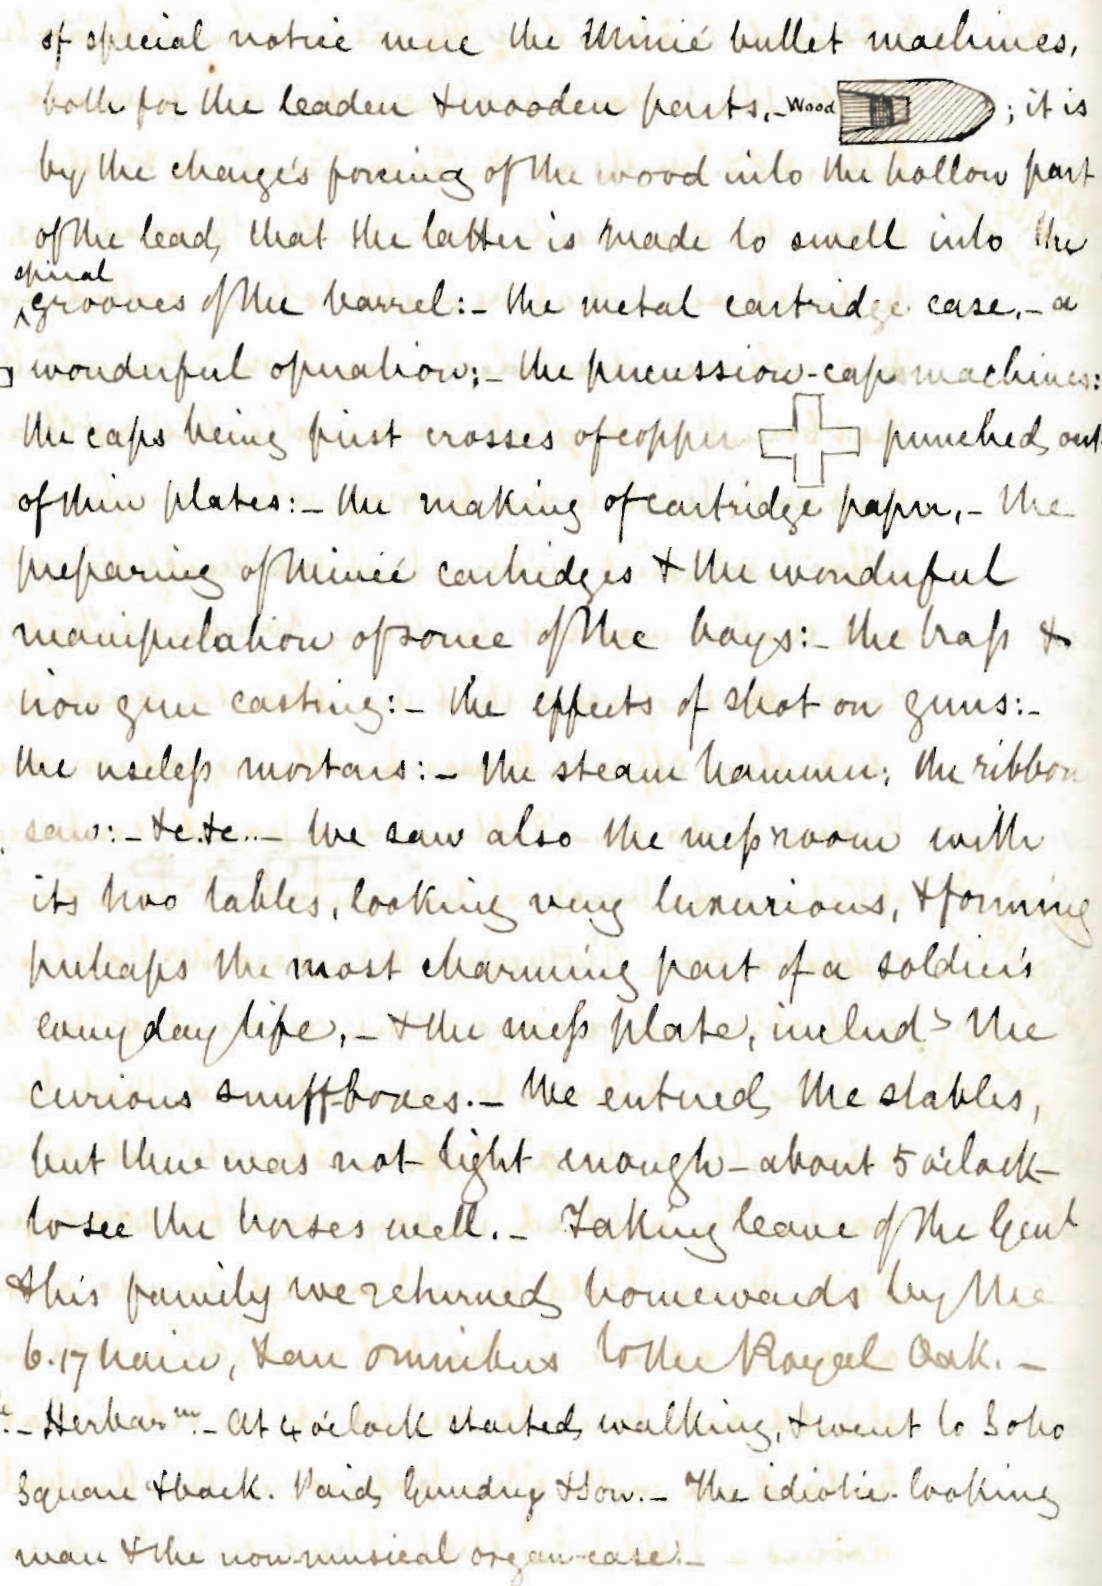 of special notice were the Minié bullet machines,
both for the leaden & wooden parts,- Wood ; it is
by the charge's forcing of the wood into the hollow part
of the lead, that the latter is made to swell into the
spiral
^grooves of the barrel:- the metal cartridge case,- a
wonderful operation;- the percussion-cap machines:
the caps being first crosses of copper punched out
of thin plates:- the making of cartridge paper,- the
preparing of Minié cartridges & the wonderful
manipulation of some of the boys:- the brass &
iron gun casting:- the effects of shot on guns:-
the useless mortars:- the steam hammer; the ribbon
saw:- &c. &c..- We saw also the mess room with
its two tables, looking very luxurious, & forming
perhaps the most charming part of a soldier's
every day life,- & the mess plate, includg the
curious snuff-boxes.- We entered the stables,
but there was not light enough - about 5 o'clock -
to see the horses well.- Taking leave of the Genl
& his family we returned homewards by the
6.17 train, & an omnibus to the Royal Oak.-
- Herbarm.- At 4 o'clock started walking, & went to Soho
Square & back. Paid Gundry & Son.- The idiotic-looking
man & the non-musical organ-case.-